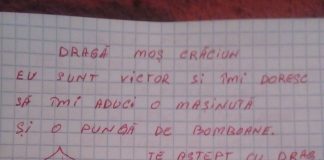 DRAGĂ MOȘ CRĂCIUN
EU SUNT VICTOR SI ÎMI DORESC
SĂ ÎMI ADUCI O MAȘINUȚĂ
ȘI O PUNGĂ DE BOMBOANE.
TE AȘTEPT CU DRAG